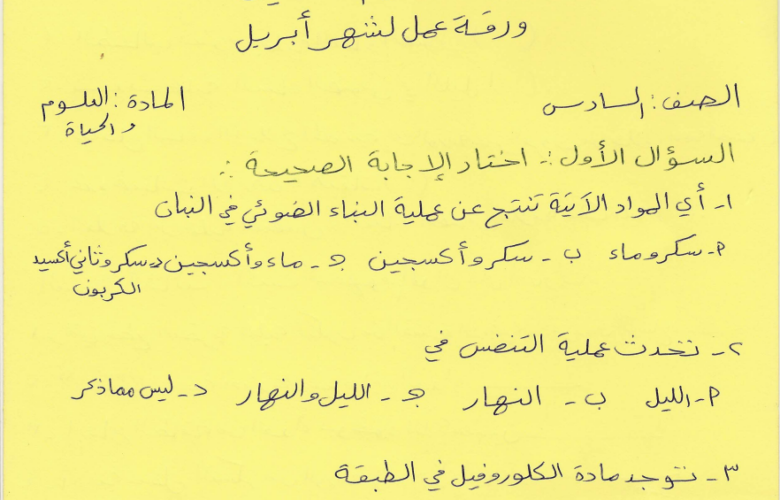 ورقة عمل لشهر أبريل
الصف : السادس المادة : العلوم
والحياة
السؤال الأول :- اختار الإجابة الصحيحة :-
١- أي المواد الآتية تنتج عن عملية البناء الضوئي في النبات
أ- سكر وماء ب- سكر وأكسجين ج- ماء وأكسجين د- سكر وثاني أكسيد
الكربون
٢- تحدث عملية التنفس في
أ- الليل ب- النهار ج- الليل والنهار د- ليس مما ذكر
٣- توجد مادة الكلوروفيل في الطبقة